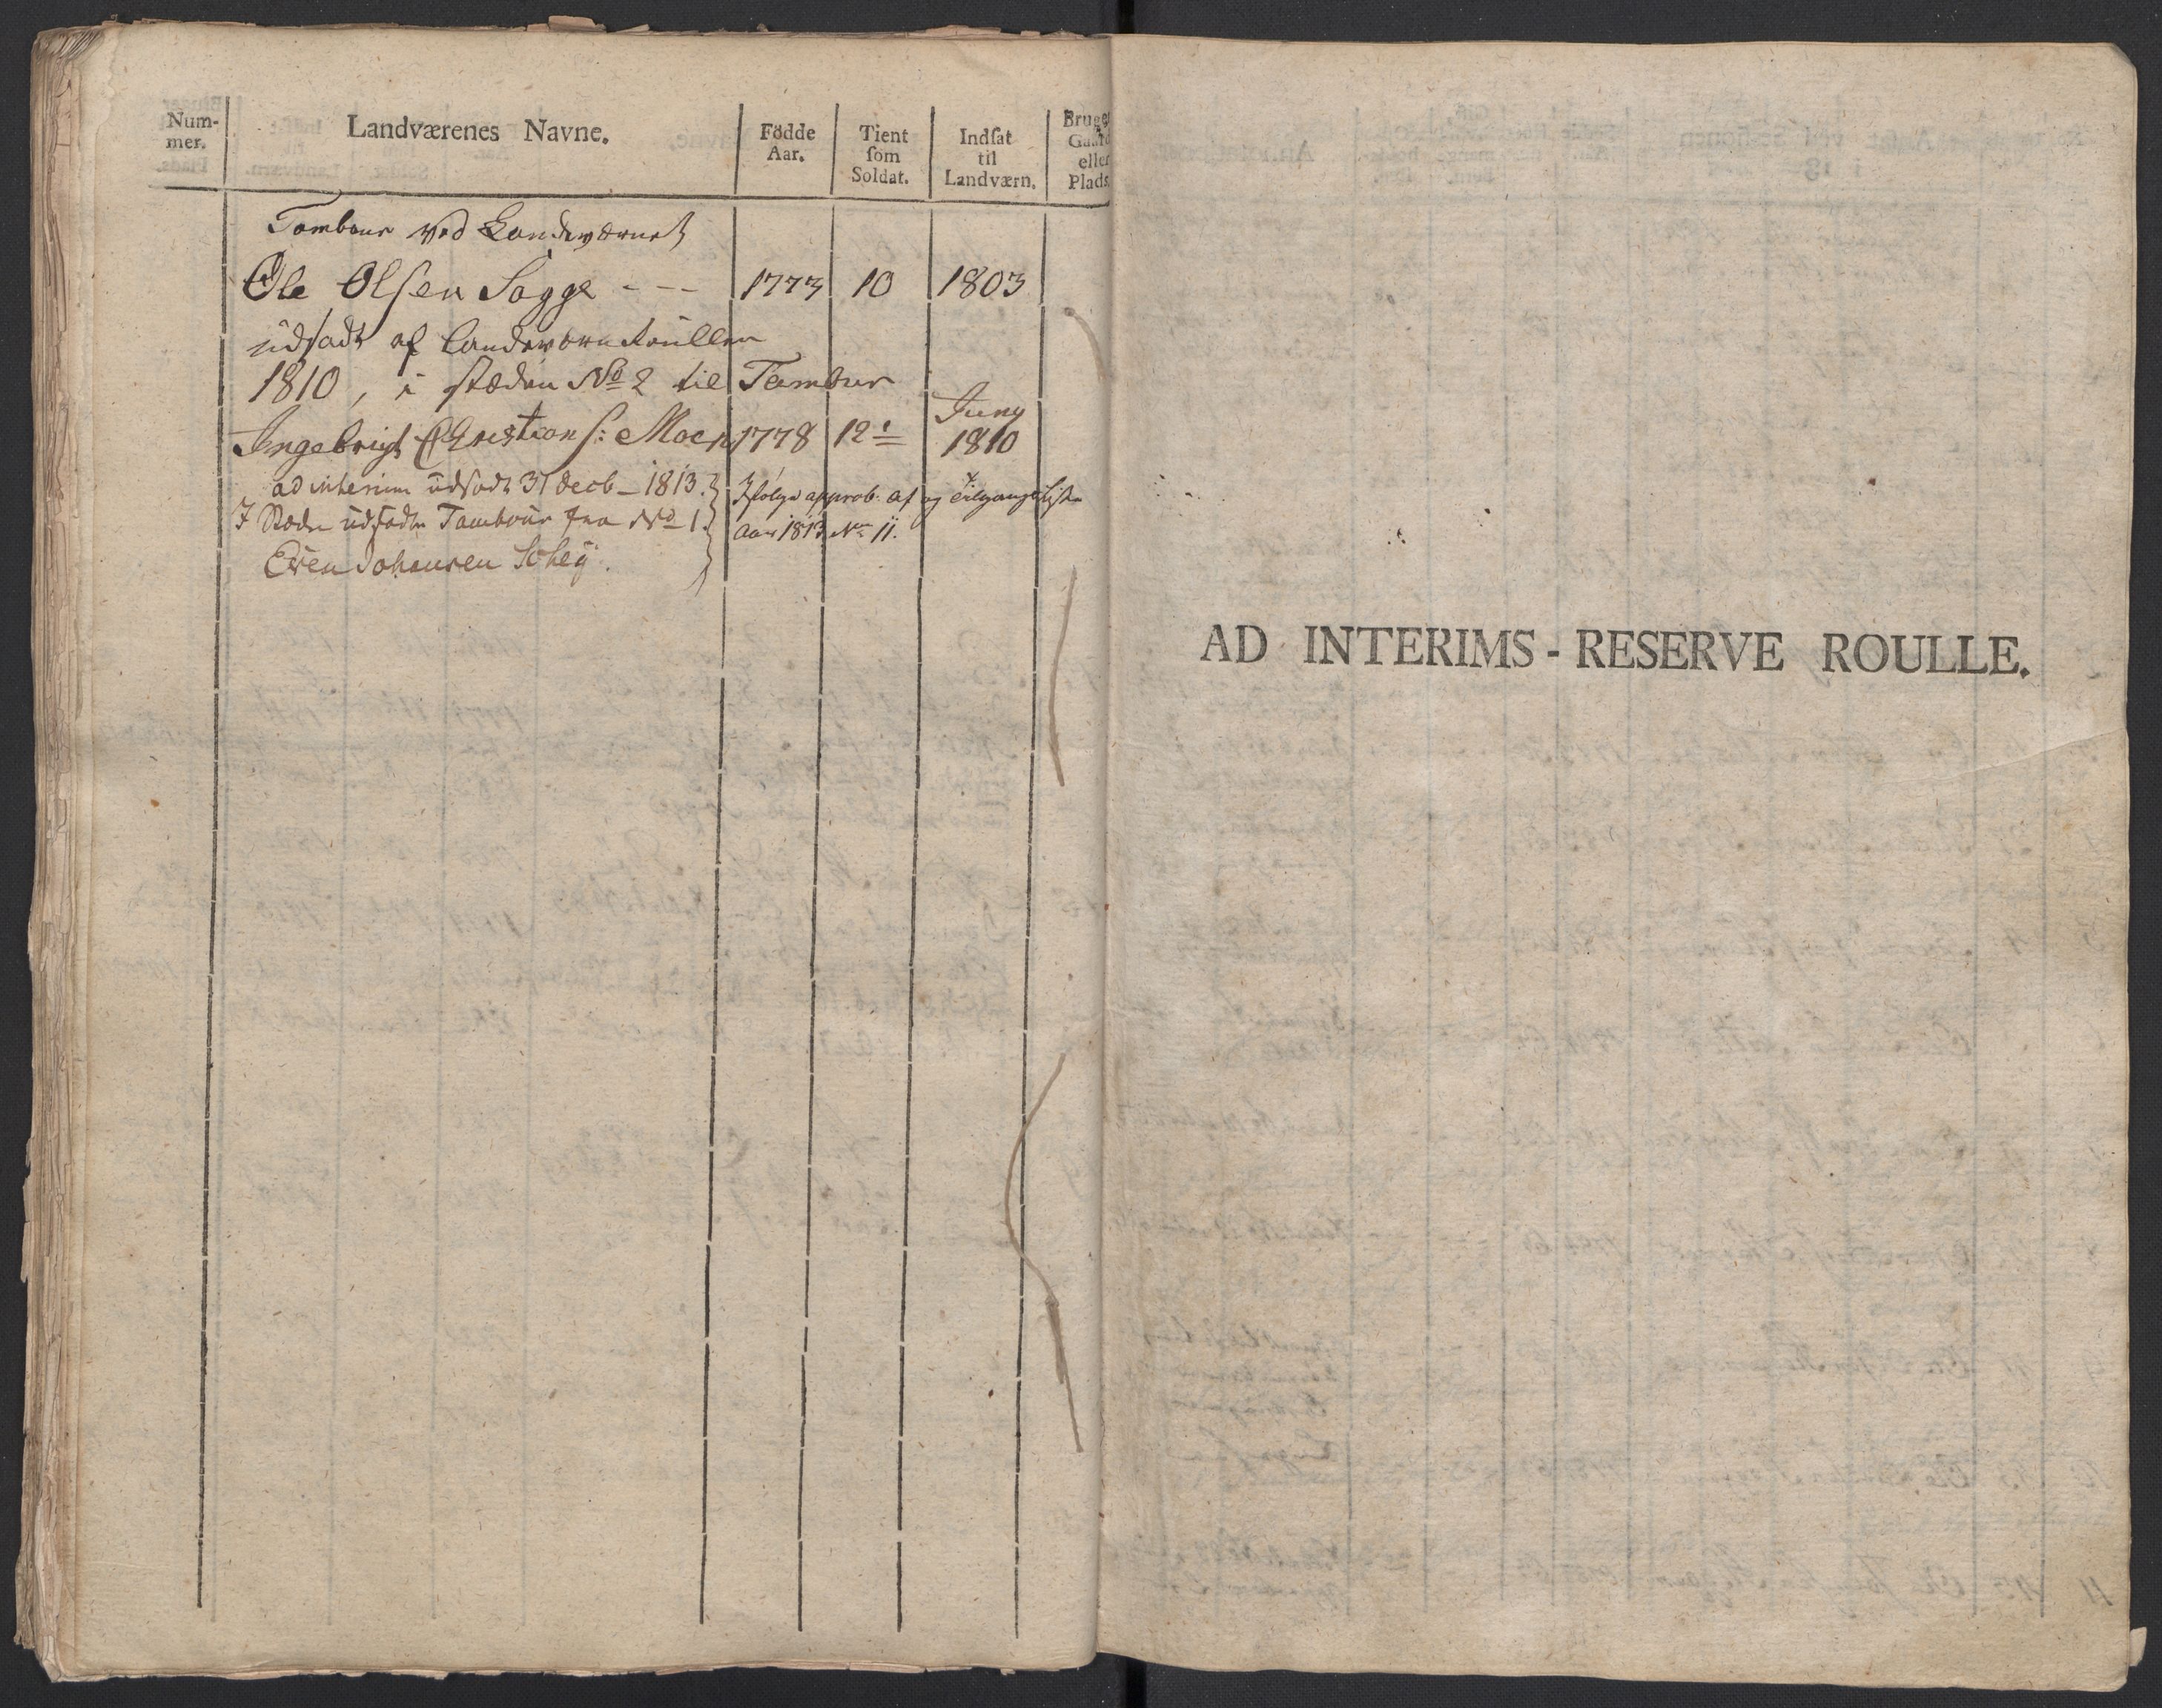 Num-
mer.
Landværenes Navne.
Födde
Aar.
Tient
som
Soldat.
Indsat
til
Landværn.
Bruger
Gaard
eller
Plads.
Tambour ved Landeværnet
Ole Olsen Sogge - - - 1773 10 1803
udsadt af Landeværn Roullen
1810, i stæden No 2 til Tambur
Ingebrigt Christians: Moen 1778 12 Juny 1810
ad interim udsadt 31 Decb - 1813.
I Stæden udsadte Tambour fra No 1.
Even Johansen
Ifølge approb. af og Tilgangs Liste
Aar 1813 No 11.
AD INTERIMS - RESERVE ROULLE.